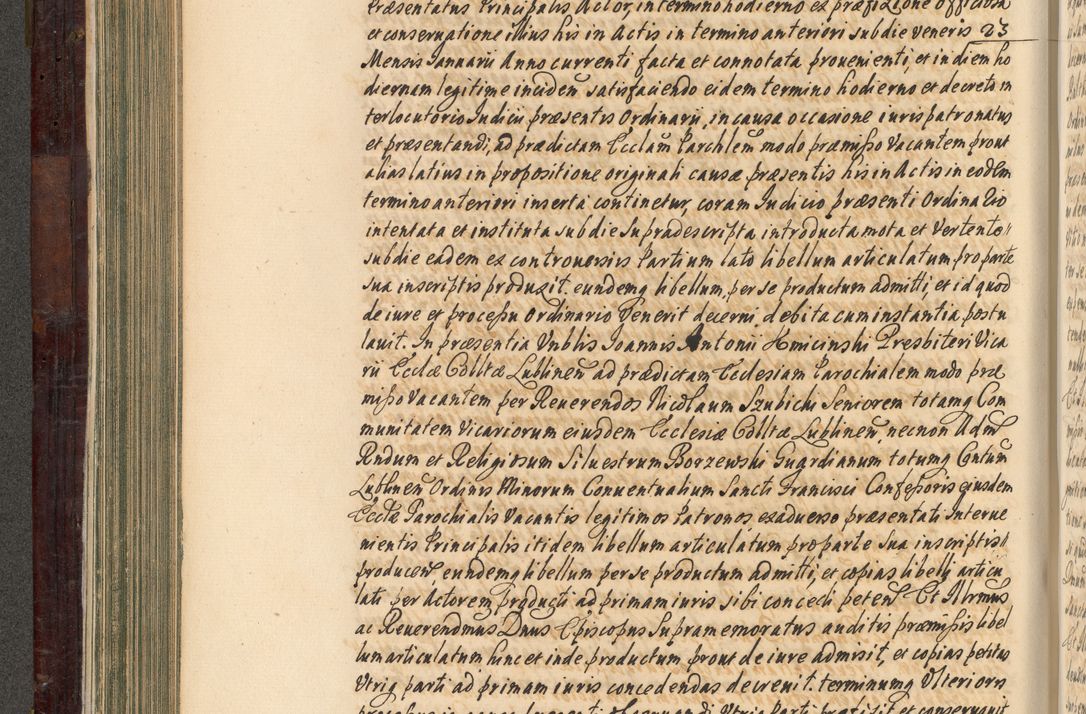 Præsentatus Principalis Actor, in termino hodierno ex præfixione officiosa
et conservatione illius his in Actis in termino anteriori sub die veneris 23
Mensis Januarii Anno currenti facta et connotata provenienti, et in diem ho
diernam legitime inciden satisfaciendo eidem termino hodierno et decreto in
terlocutorio Judicii præsentis Ordinarii, in causa occasione iuris patronatus
et præsentandi, ad prædictam Ecclam Parchlem modo præmisso vacantem prout
alias latius in propositione originali causæ præsentis his in Actis in eodem
termino anteriori inserta continetur, coram Judicio præsenti Ordinario
intentata et instituta sub die supradescripta introducta mota et vertente
sub die eadem ex controversiis Partium lato libellum articulatum pro parte
sua in scriptis produxit. eundemq libellum, per se productum admitti, et id quod
de iure et processu ordinario venerit decerni, debita cum instantia postu
lavit. In præsentia Vnblis Joannis Antonii Hmicinski Presbiteri Vica
rii Ecclæ Colltæ Lublinen ad prædictam Ecclesiam Parochialem modo præ
misso vacantem per Reverendos Nicolaum Szubichi Seniorem totamq Com
munitatem Vicariorum eiusdem Ecclesiæ Colltæ Lublinen, necnon Adm
Rndum et Religiosum Silvestrum Borzewski Guardianum totumq Cntum
Lublinen Ordinis Minorum Conventualium Sancti Francisci Confessoris eiusdem
Ecclæ Parochialis vacantis legitimos Patronos, ex adverso præsentati Interve
nientis Principalis itidem libellum articulatum pro parte sua in scriptis
producen eundemq libellum per se productum admitti, et copias libelli articu
lati per Actorem producti ad primam iuris sibi concedi peten Et Illrmus
ac Reverendmus Dnus Episcopus Supramemoratus auditis præmissis libel
lum articulatum hinc et inde productum prout de iure admisit, et copias petitas
Utriq parti ad primam iuris concedendas decrevit. terminumq Ulterioris